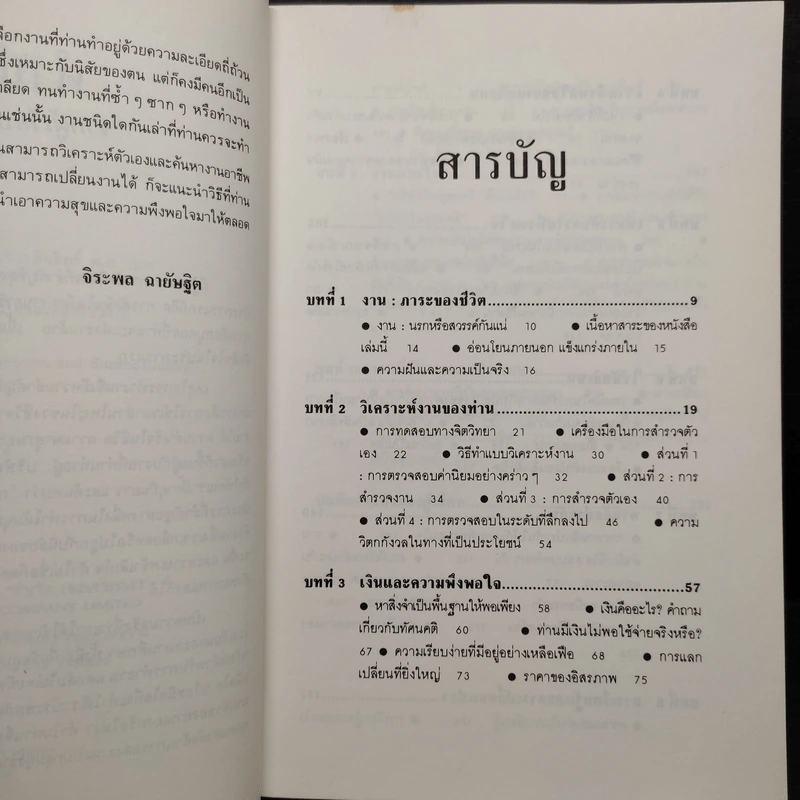 ลือกงานที่ท่านทำอยู่ด้วยความละเอียดถี่ถ้วน
ซึ่งเหมาะกับนิสัยของตน แต่ก็คงมีคนอีกเป็น
กลียด ทนทำงานที่ซ้ำ ๆ ซาก ๆ หรือทำงาน
นเช่นนั้น งานชนิดใดกันเล่าที่ท่านควรจะทำ
นสามารถวิเคราะห์ตัวเองและค้นหางานอาชีพ
สามารถเปลี่ยนงานได้ ก็จะแนะนำวิธีที่ท่าน
นำเอาความสุขและความพึงพอใจมาให้ตลอด
จิระพล ฉายัษฐิต
สารบัญ
บทที่ 1 งาน : ภาระของชีวิต.......................................9
● งาน : นรกหรือสวรรค์กันแน่ 10 ● เนื้อหาสาระของหนังสือ
เล่มนี้ 14 ● อ่อนโยนภายนอก แข็งแกร่งภายใน 15
● ความฝันและความเป็นจริง 16
บทที่ 2 วิเคราะห์งานของท่าน....................................19
● การทดสอบทางจิตวิทยา 21 ● เครื่องมือในการสำรวจตัว
เอง 22 ● วิธีทำแบบวิเคราะห์งาน 30 ● ส่วนที่ 1
: การตรวจสอบค่านิยมอย่างคร่าว ๆ 32 ● ส่วนที่ 2 : การ
สำรวจงาน 34 ● ส่วนที่ 3 : การสำรวจตัวเอง 40
● ส่วนที่ 4 : การตรวจสอบในระดับที่ลึกลงไป 46 ● ความ
วิตกกังวลในทางที่เป็นประโยชน์ 54
บทที่ 3 เงินและความพึงพอใจ....................................57
● หาสิ่งจำเป็นพื้นฐานให้พอเพียง 58 ● เงินคืออะไร? คำถาม
เกี่ยวกับทัศนคติ 60 ● ท่านมีเงินไม่พอใช้จ่ายจริงหรือ?
67 ● ความเรียบง่ายที่มีอยู่อย่างเหลือเฟือ 68 ● การแลก
เปลี่ยนที่ยิ่งใหญ่ 73 ● ราคาของอิสรภาพ 75